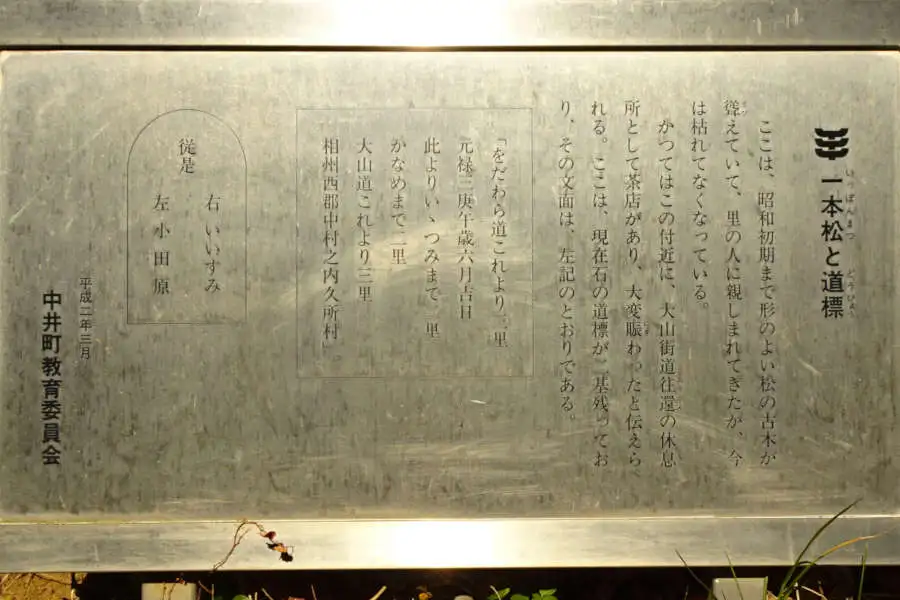 一本松と道標
いっぽんまつ
どうひょう
ここは、昭和初期まで形のよい松の古木が
聳えていて、里の人に親しまれてきたが、今
は枯れてなくなっている。
かつてはこの付近に、大山街道往還の休息
所として茶店があり、大変賑わったと伝えら
れる。ここは、現在石の道標が二基残ってお
り、その文面は、左記のとおりである。
「をだわら道これより三里
元禄三庚午歳六月吉日
此よりいゝつみまで二里
かなめまで二里
大山道これより三里
相州西郡中村之内久所村」。
従是
右 いいすみ
左 小田原
平成二年三月
中井町教育委員会